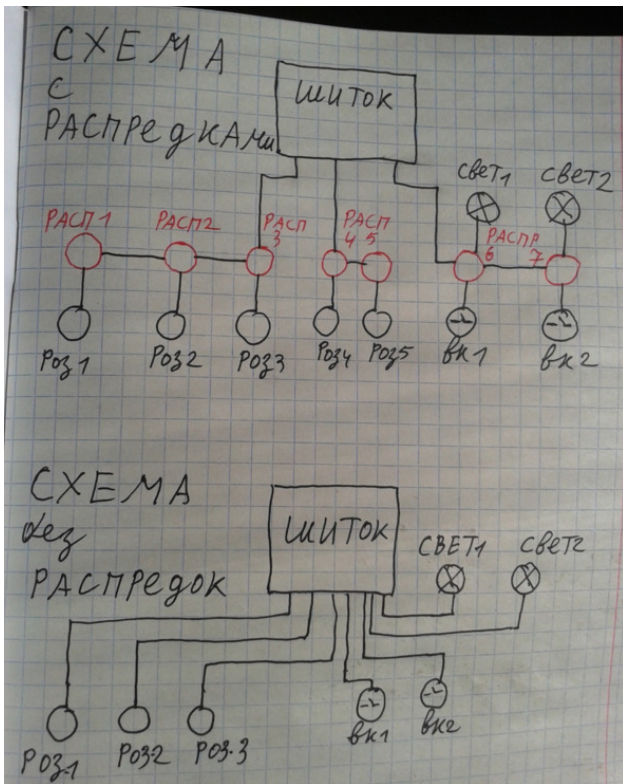 СХЕМА
С
РАСПРЕДКАМИ
ШИТОК
СВЕТ1
СВЕТ2
РАСП1
РАСП2
РАСП
3
РАСП
4 5
РАСПР
6 7
РОЗ1
РОЗ2
РОЗ3
РОЗ4
РОЗ5
ВК1
ВК2
СХЕМА
без
РАСПРЕДОК
ШИТОК
СВЕТ1
СВЕТ2
РОЗ.1
РОЗ2
РОЗ.3
ВК1
ВК2